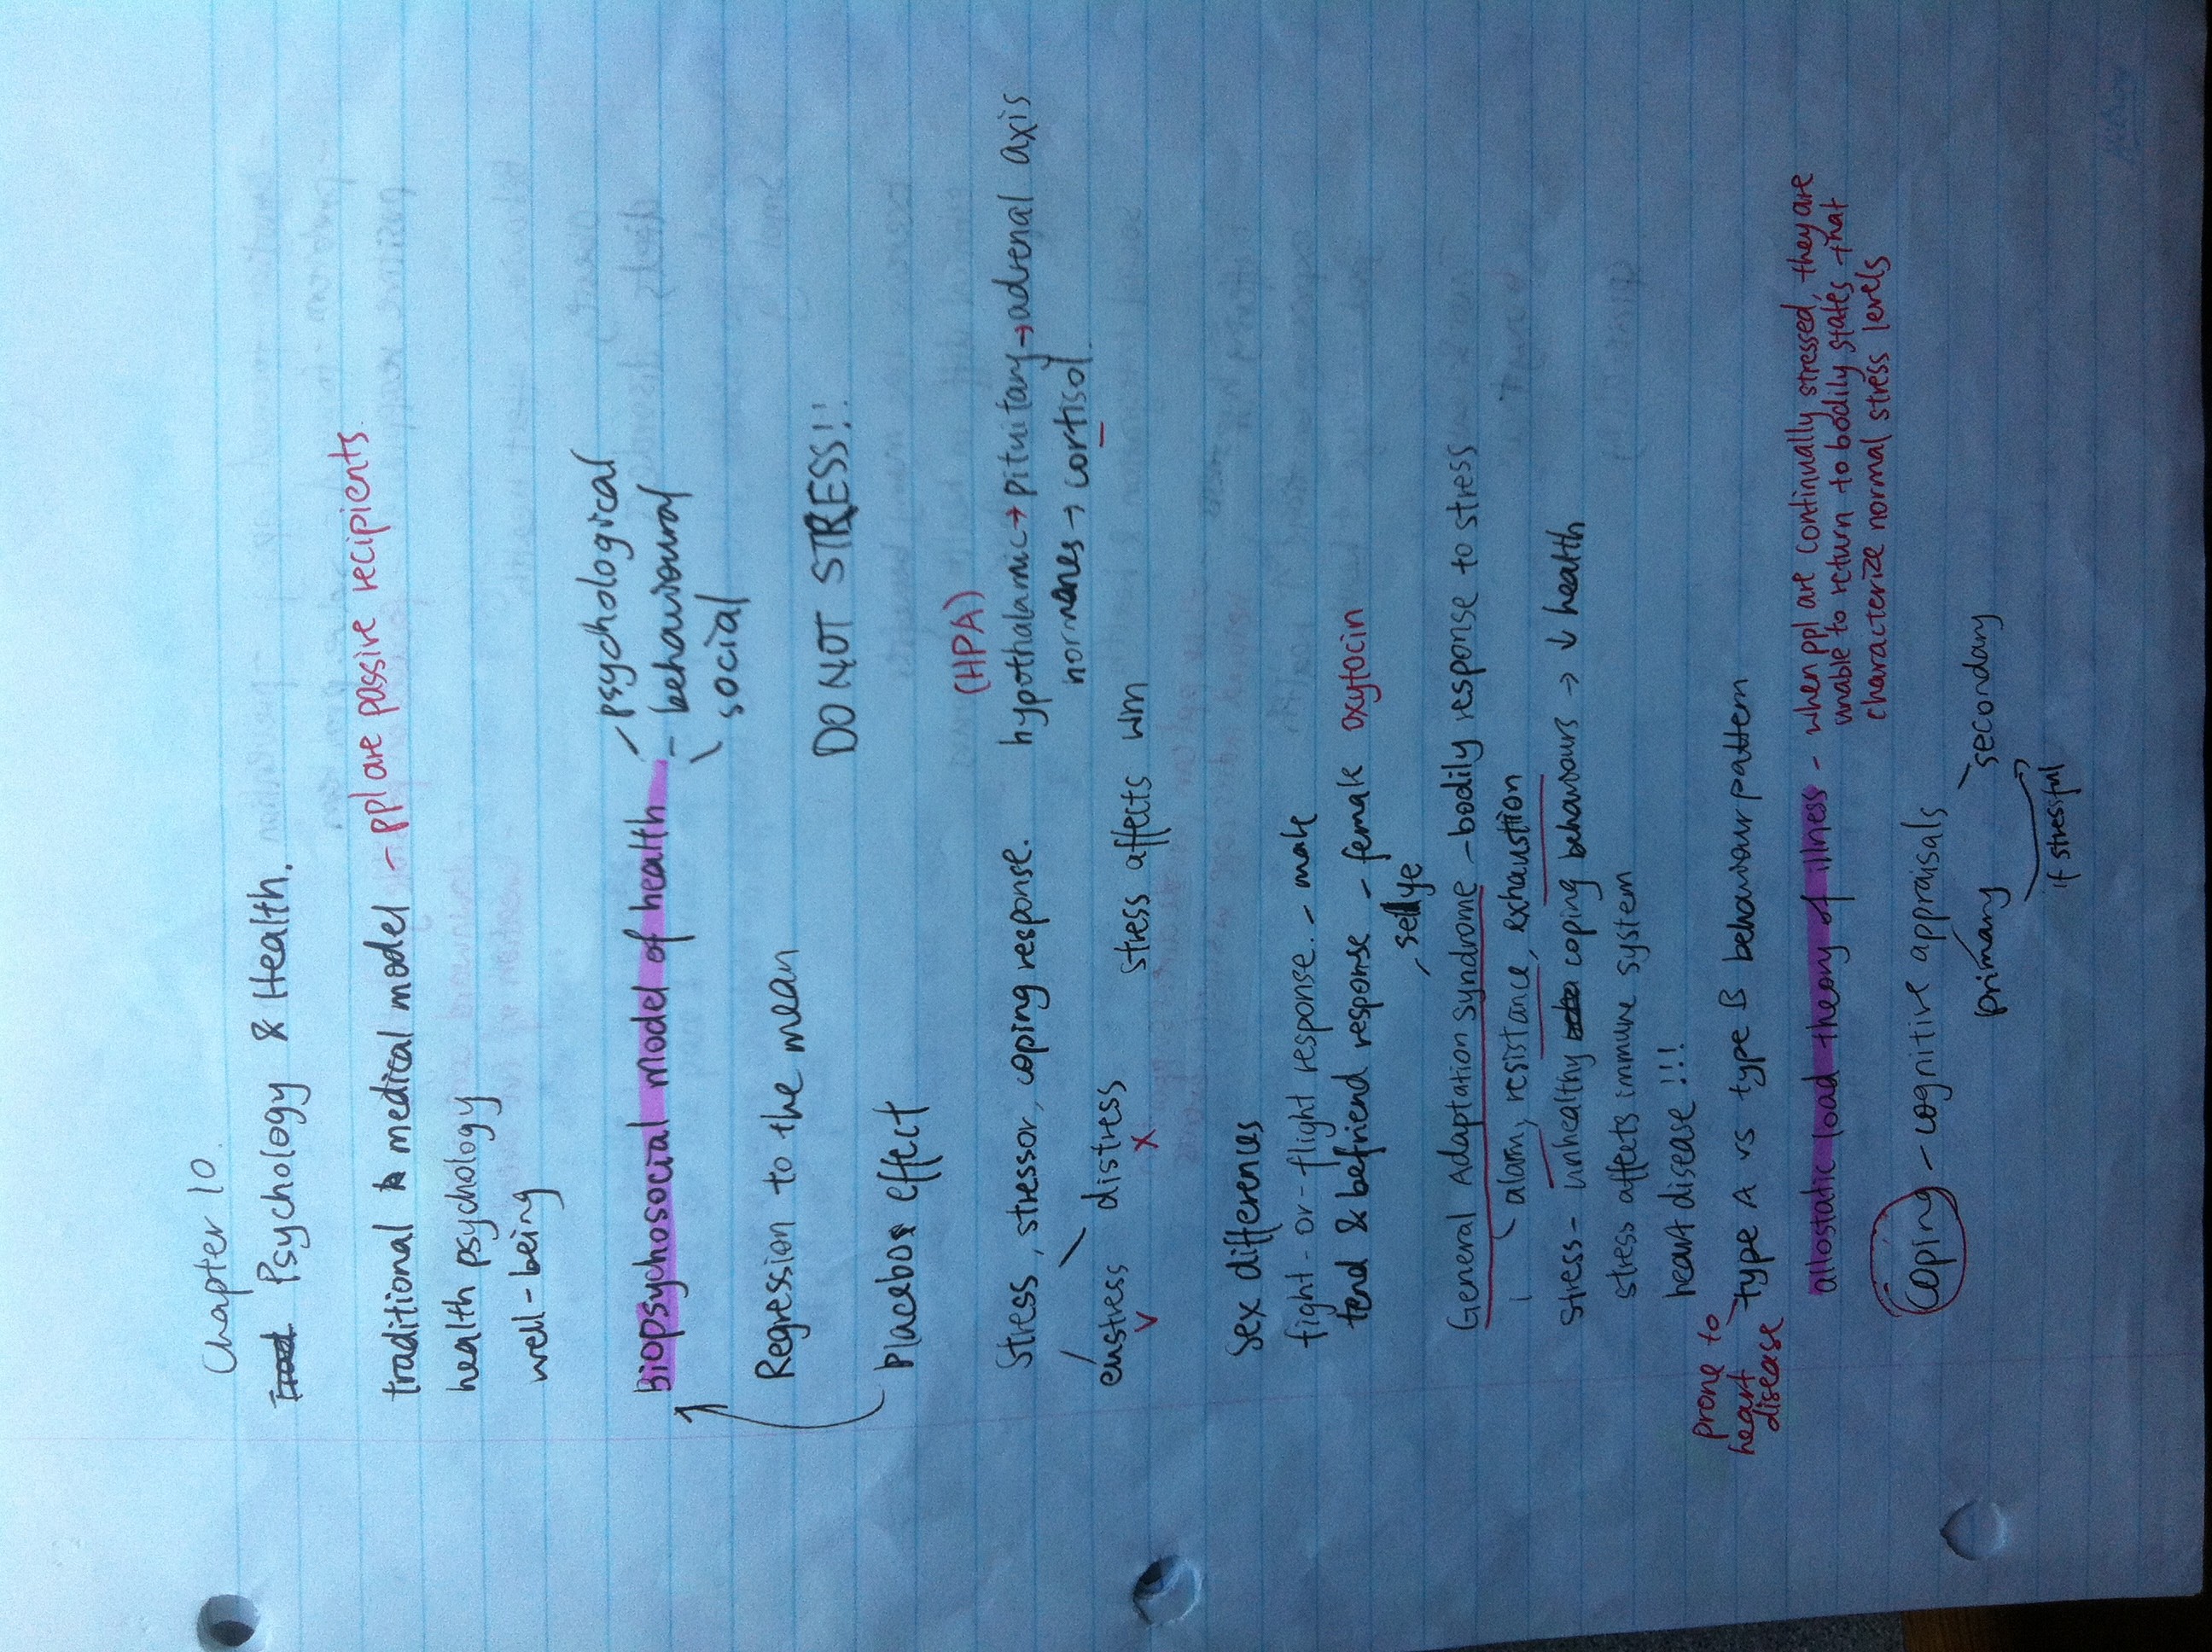 Chapter 10.
Psychology & Health.
traditional medical model - ppl are passive recipients.
health psychology
well-being
Biopsychosocial model of health - psychological
- behavioural
social
Regression to the mean
DO NOT STRESS!!
Placebo effect
(HPA)
Stress, stressor, coping response. hypothalamic → pituitary → adrenal axis
eustress distress hormones → cortisol.
v x stress affects wm
Sex differences
fight-or-flight response. - male
tend & befriend response - female oxytocin
selye
General Adaptation Syndrome - bodily response to stress
alarm, resistance, exhaustion
Stress - unhealthy coping behaviours → ↓ health
stress affects immune system
heart disease!!!
prone to heart disease
type A vs type B behaviour pattern
allostatic load theory of illness - when ppl are continually stressed, they are
unable to return to bodily states that
characterize normal stress levels
Coping - cognitive appraisals
primary secondary
if stressful